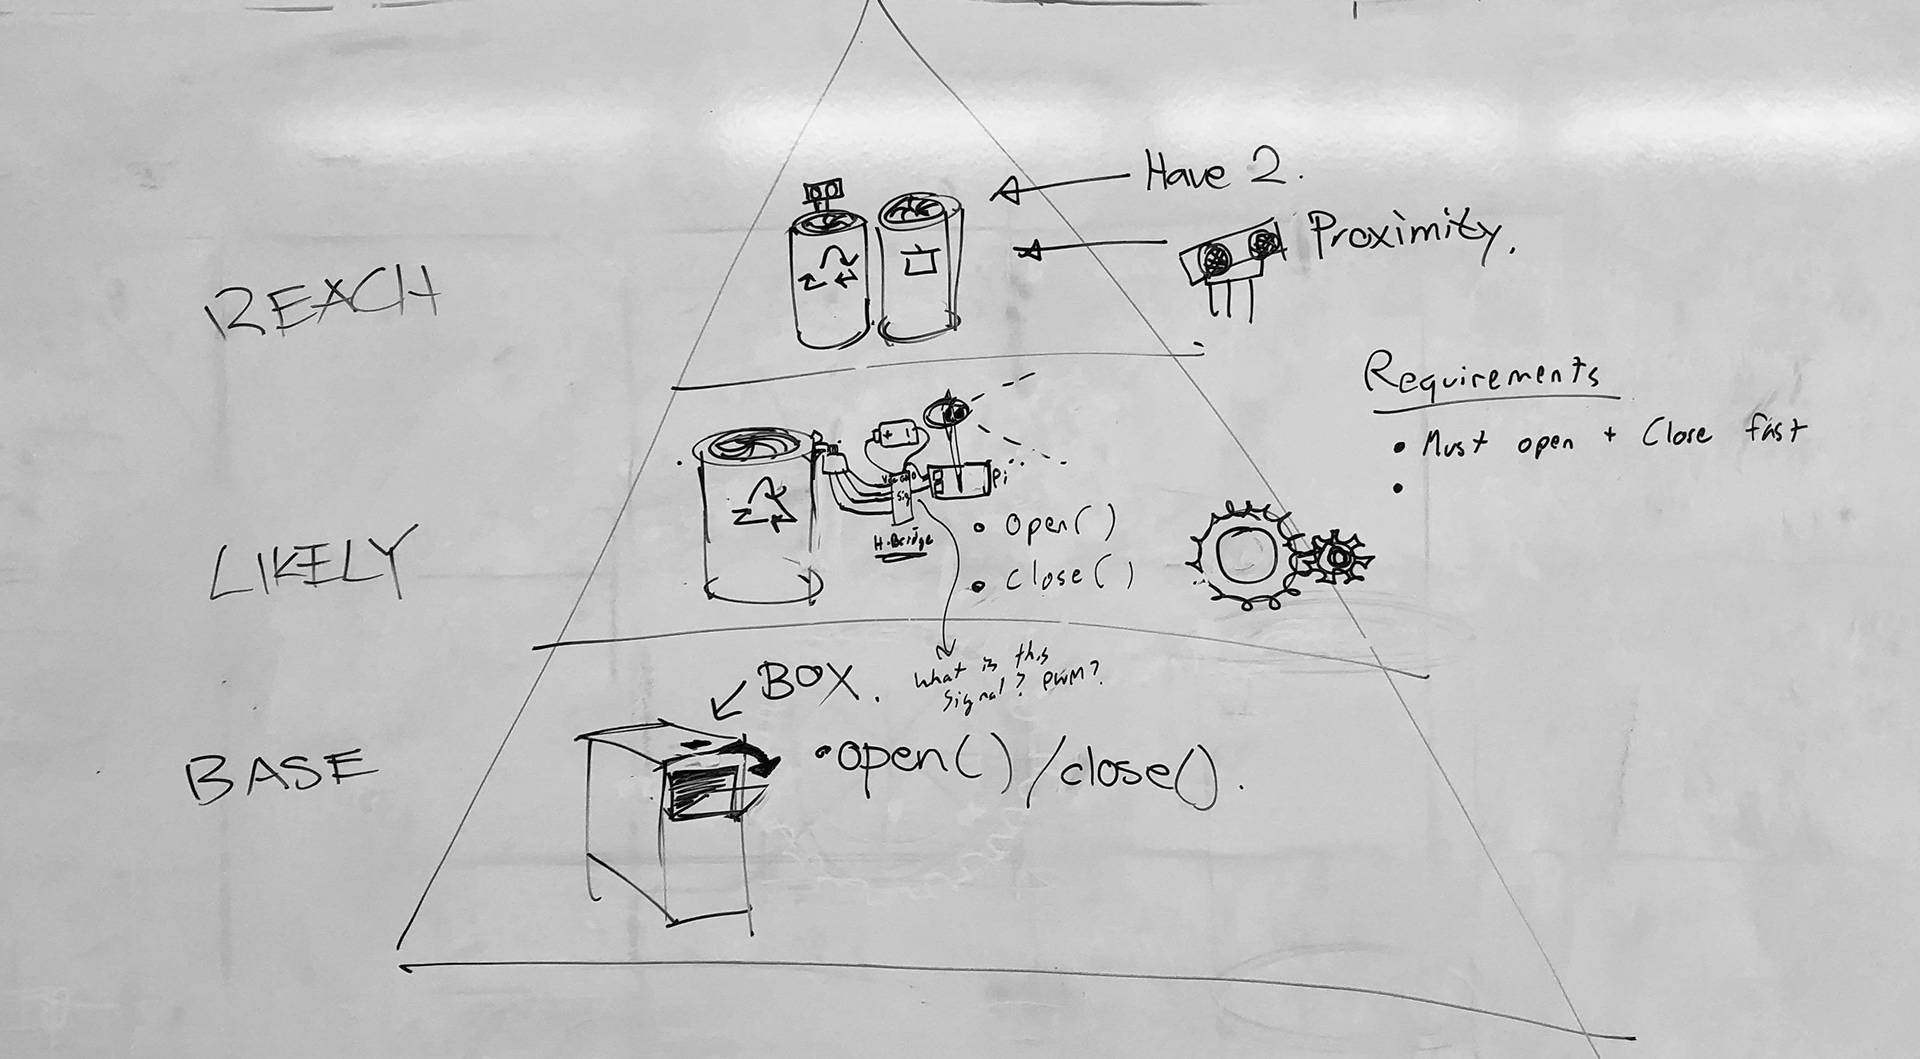 Have 2.
Proximity.
REACH
Requirements
• Must open + Close fast
•
+
Pi
Sig
H-Bridge
• open()
• close()
LIKELY
What is this
Signal? PWM?
BOX.
BASE
• open()/close().